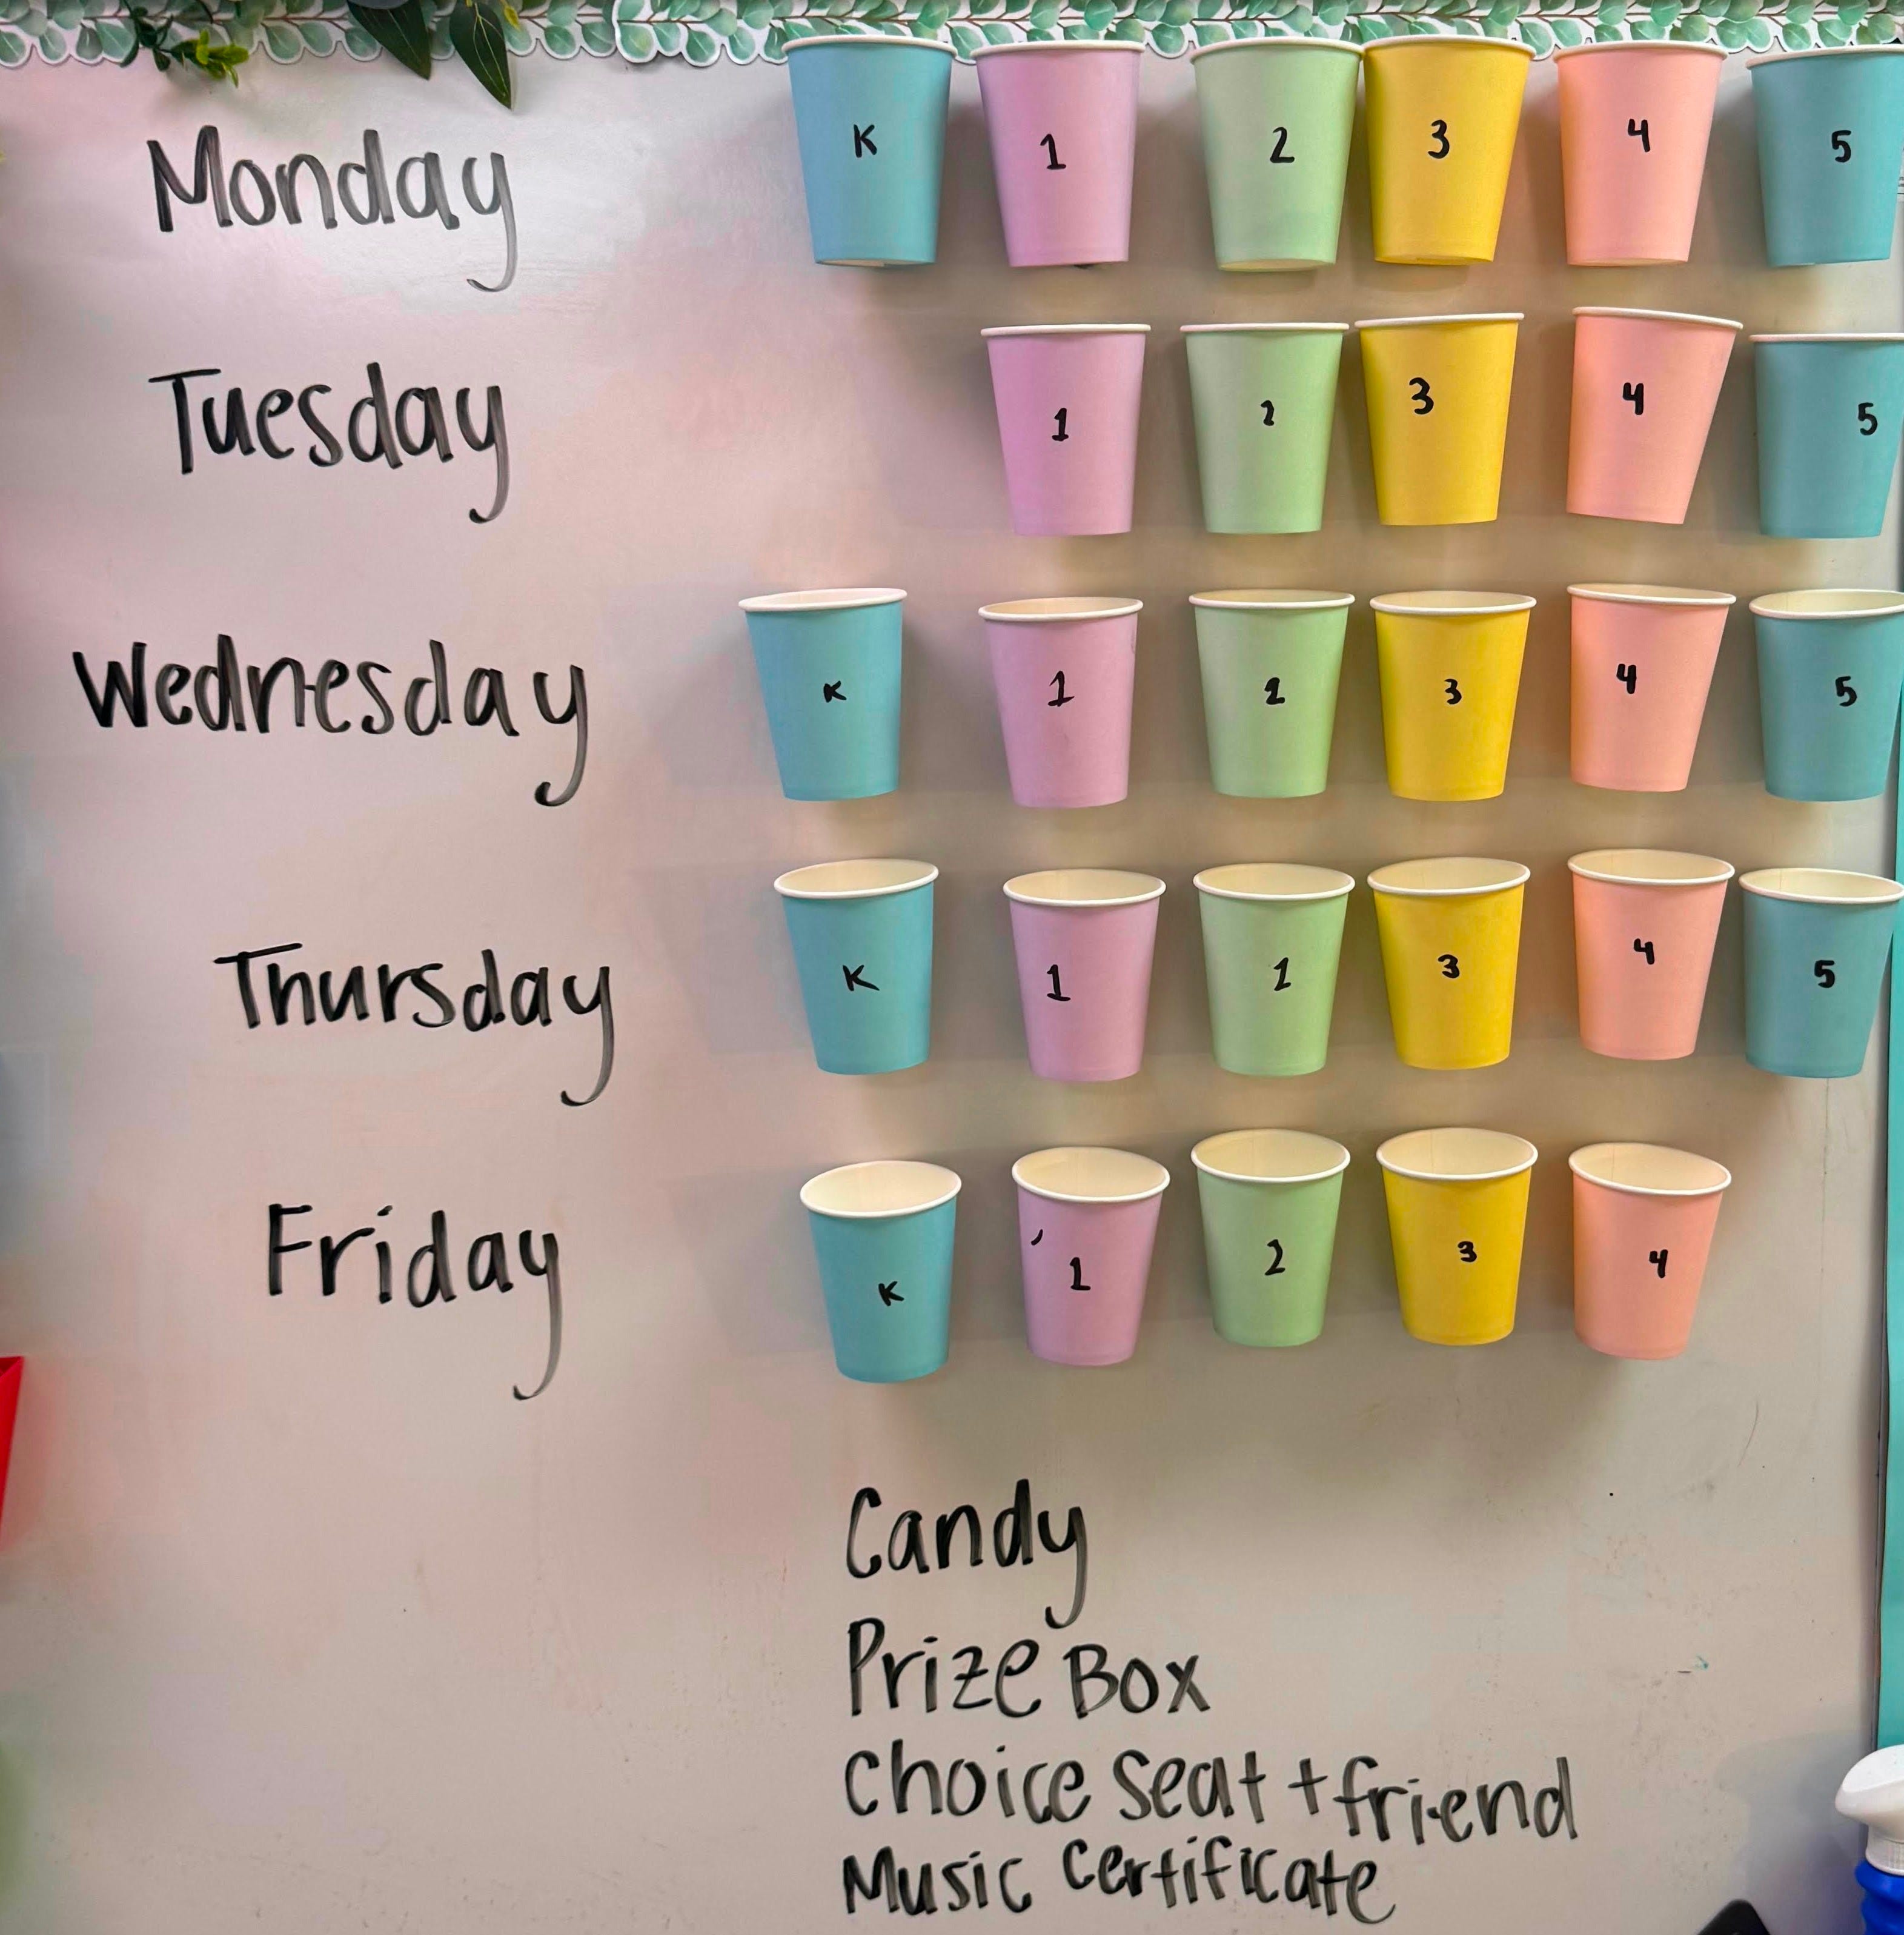 Monday K 1 2 3 4 5
Tuesday 1 2 3 4 5
Wednesday K 1 2 3 4 5
Thursday K 1 2 3 4 5
Friday K 1 2 3 4
Candy
Prize Box
Choice seat + friend
Music Certificate